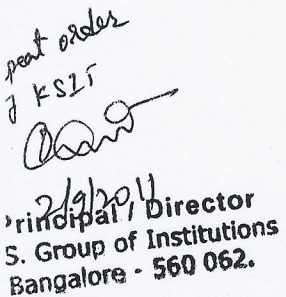 peat order
KSIT
2/9/2011
rincipal / Director
S. Group of Institutions
Bangalore - 560 062.